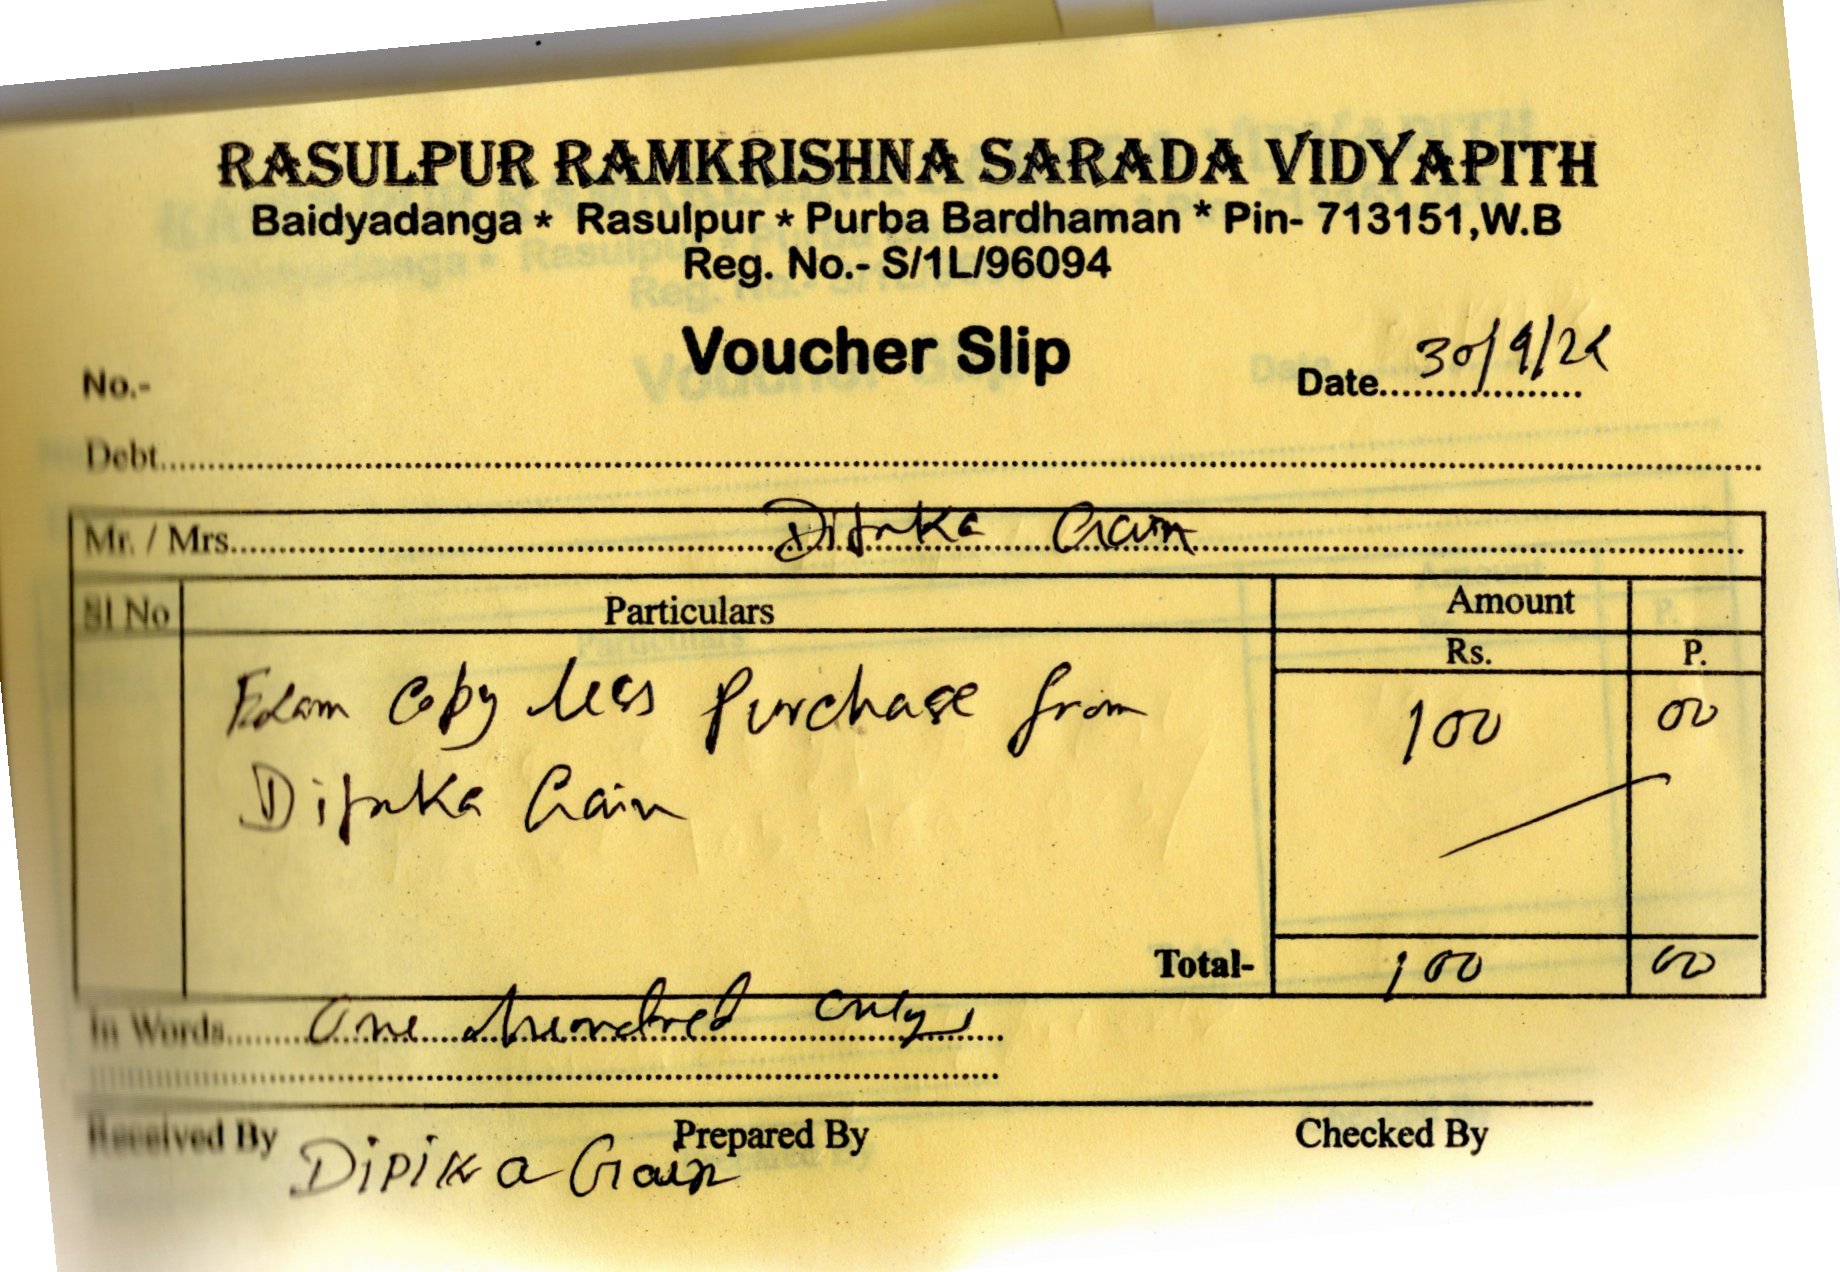 RASULPUR RAMKRISHNA SARADA VIDYAPITH
Baidyadanga * Rasulpur * Purba Bardhaman * Pin- 713151,W.B
Reg. No.- S/1L/96094
Voucher Slip
No.-
Date 30/9/24
Debt
Mr. / Mrs. Dipika Gain
Sl No Particulars Amount
Rs. P.
Exam Copy purchase from 100 00
Dipika Gain
Total- 100 00
In Words One hundred only
Received By Prepared By Checked By
Dipika Gain